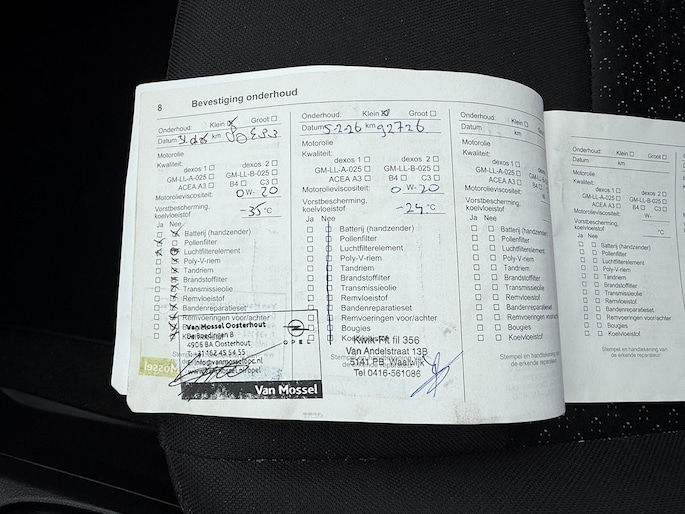 8 Bevestiging onderhoud
Onderhoud: Klein ☒ Groot ☐
Datum km
Motorolie
Kwaliteit:
dexos 1 ☐ dexos 2 ☐
GM-LL-A-025 ☐ GM-LL-B-025 ☐
ACEA A3 ☐ B4 ☐ C3 ☐
Motorolieviscositeit: 0 W- 20
Vorstbescherming,
koelvloeistof -35 °C
Ja Nee
Batterij (handzender)
Pollenfilter
Luchtfilterelement
Poly-V-riem
Tandriem
Brandstoffilter
Transmissieolie
Remvloeistof
Bandenreparatieset
Remvoeringen voor/achter
Van Mossel Oosterhout
4906 BA Oosterhout
OPEL
Van Mossel
Onderhoud: Klein ☒ Groot ☐
Datum 5-2-26 km 92726
Motorolie
Kwaliteit:
dexos 1 ☐ dexos 2 ☐
GM-LL-A-025 ☐ GM-LL-B-025 ☐
ACEA A3 ☐ B4 ☐ C3 ☐
Motorolieviscositeit: 0 W- 20
Vorstbescherming,
koelvloeistof -24 °C
Ja Nee
Batterij (handzender)
Pollenfilter
Luchtfilterelement
Poly-V-riem
Tandriem
Brandstoffilter
Transmissieolie
Remvloeistof
Bandenreparatieset
Remvoeringen voor/achter
Bougies
Kwik-Fit fil 356
Van Andelstraat 13B
5141 PB Waalwijk
Tel 0416-561086
Onderhoud: Klein ☐ Groot ☐
Datum km
Motorolie
Kwaliteit:
dexos 1 ☐ dexos 2 ☐
GM-LL-A-025 ☐ GM-LL-B-025 ☐
ACEA A3 ☐ B4 ☐ C3 ☐
Motorolieviscositeit: W-
Vorstbescherming,
koelvloeistof °C
Ja Nee
☐ ☐ Batterij (handzender)
☐ ☐ Pollenfilter
☐ ☐ Luchtfilterelement
☐ ☐ Poly-V-riem
☐ ☐ Tandriem
☐ ☐ Brandstoffilter
☐ ☐ Transmissieolie
☐ ☐ Remvloeistof
☐ ☐ Bandenreparatieset
☐ ☐ Remvoeringen voor/achter
☐ ☐ Bougies
☐ ☐ Koelvloeistof
Stempel en handtekening van
de erkende reparateur
Onderhoud: Klein ☐ Groot ☐
Datum km
Motorolie
Kwaliteit:
dexos 1 ☐ dexos 2 ☐
GM-LL-A-025 ☐ GM-LL-B-025 ☐
ACEA A3 ☐ B4 ☐ C3 ☐
Motorolieviscositeit: W-
Vorstbescherming,
koelvloeistof °C
Ja Nee
☐ ☐ Batterij (handzender)
☐ ☐ Pollenfilter
☐ ☐ Luchtfilterelement
☐ ☐ Poly-V-riem
☐ ☐ Tandriem
☐ ☐ Brandstoffilter
☐ ☐ Transmissieolie
☐ ☐ Remvloeistof
☐ ☐ Bandenreparatieset
☐ ☐ Remvoeringen voor/achter
☐ ☐ Bougies
☐ ☐ Koelvloeistof
Stempel en handtekening van
de erkende reparateur